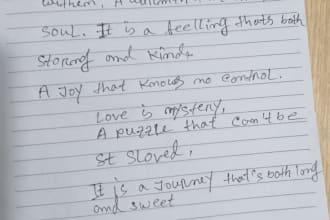 within, A
soul. It is a feelling that's both
storing and kind.
A Joy that knows no control.
Love is mystery,
A puzzle that can't be
st sloved,
It is a Journey that's both long
and sweet